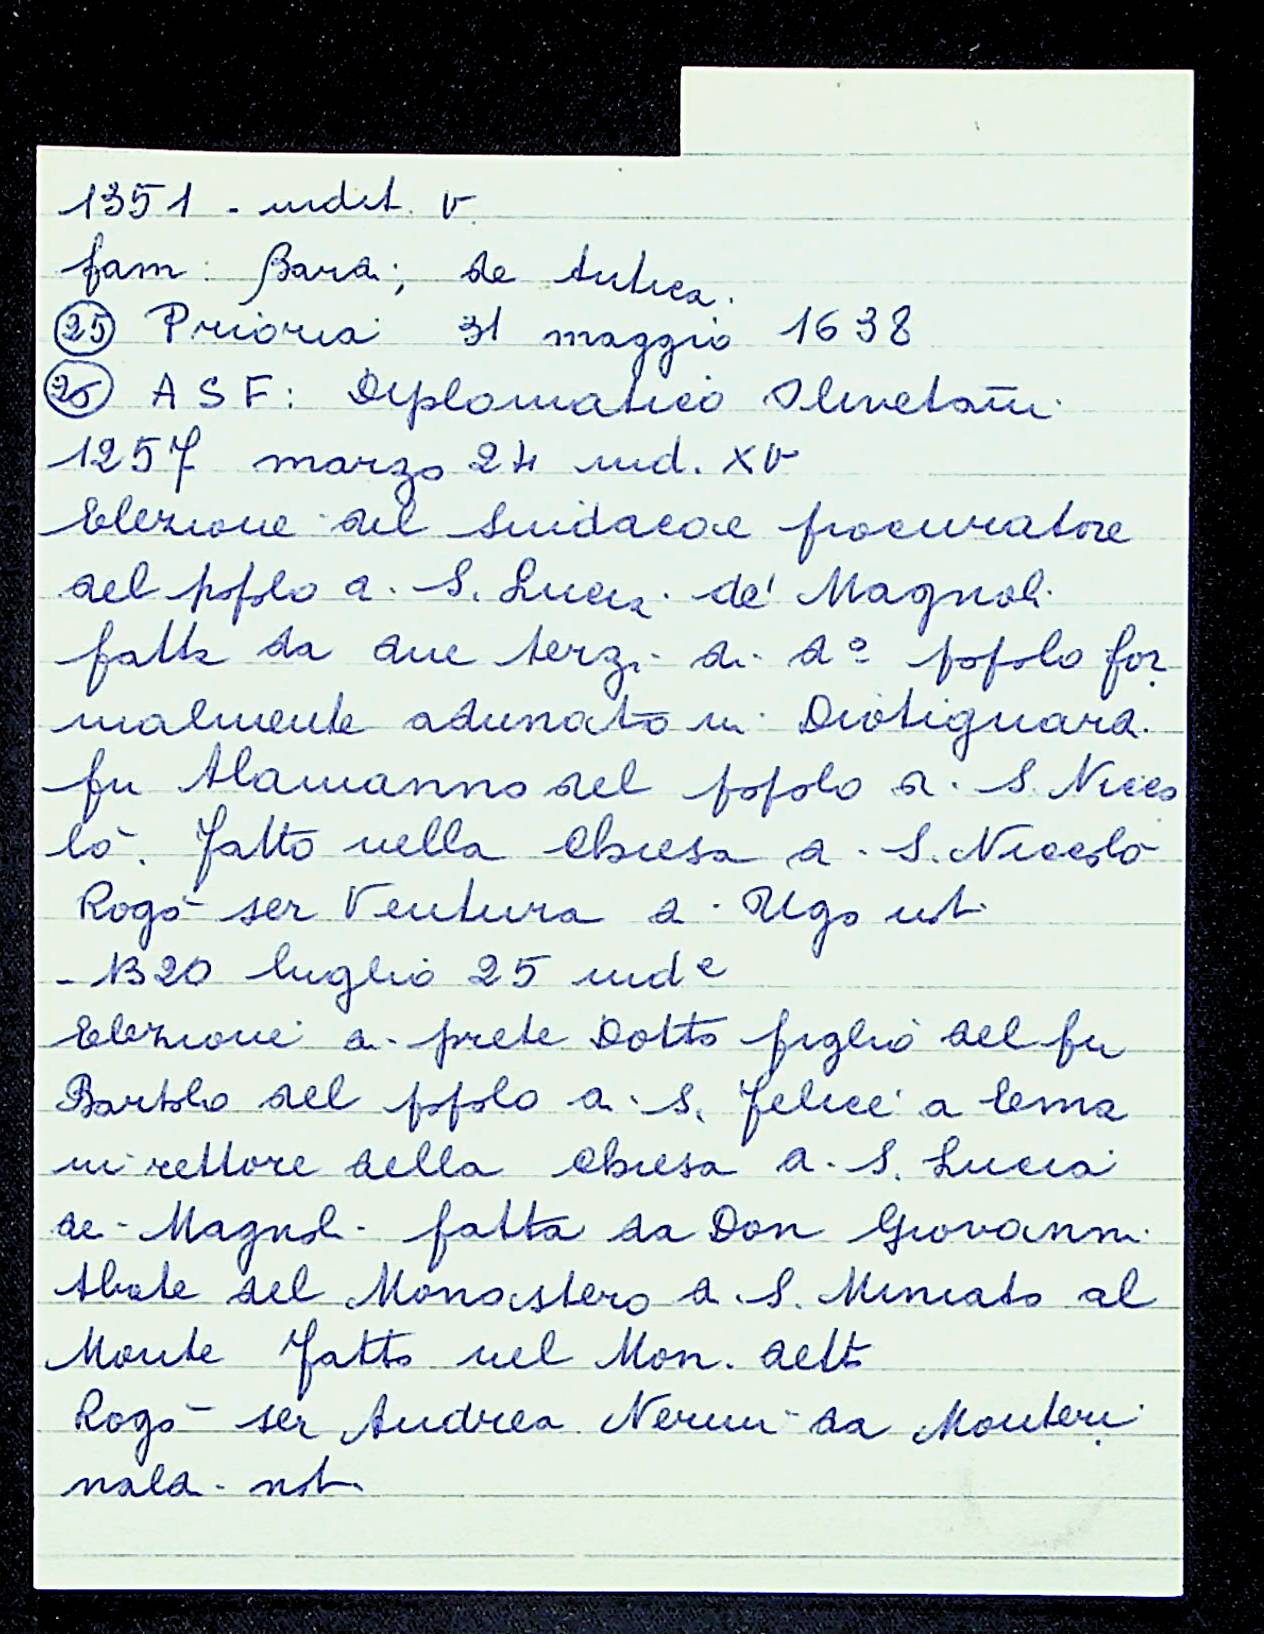 1351 - indit. V
fam: Bardi; de Antica.
(25) Prioria 31 maggio 1638
(26) A S F: Diplomatico Olivetani
1257 marzo 24 ind. XV
Elezione del Sindaco e procuratore
del popolo di S. Lucia de' Magnoli
fatta da due terzi di dº popolo for
malmente adunato in Diotiguardi
fu Alamanno del popolo di S. Nicco
lò. Fatto nella Chiesa di S. Niccolò
Rogò ser Ventura di Ugo not.
- 1320 luglio 25 indᵉ
Elezione di prete Dotto figlio del fu
Bartolo del popolo di S. Felice a Ema
in rettore della Chiesa di S. Lucia
de' Magnoli fatta da Don Giovanni
Abate del Monastero di S. Miniato al
Monte Fatto nel Mon. detto
Rogò ser Andrea Nerini da Monteri
naldi not.